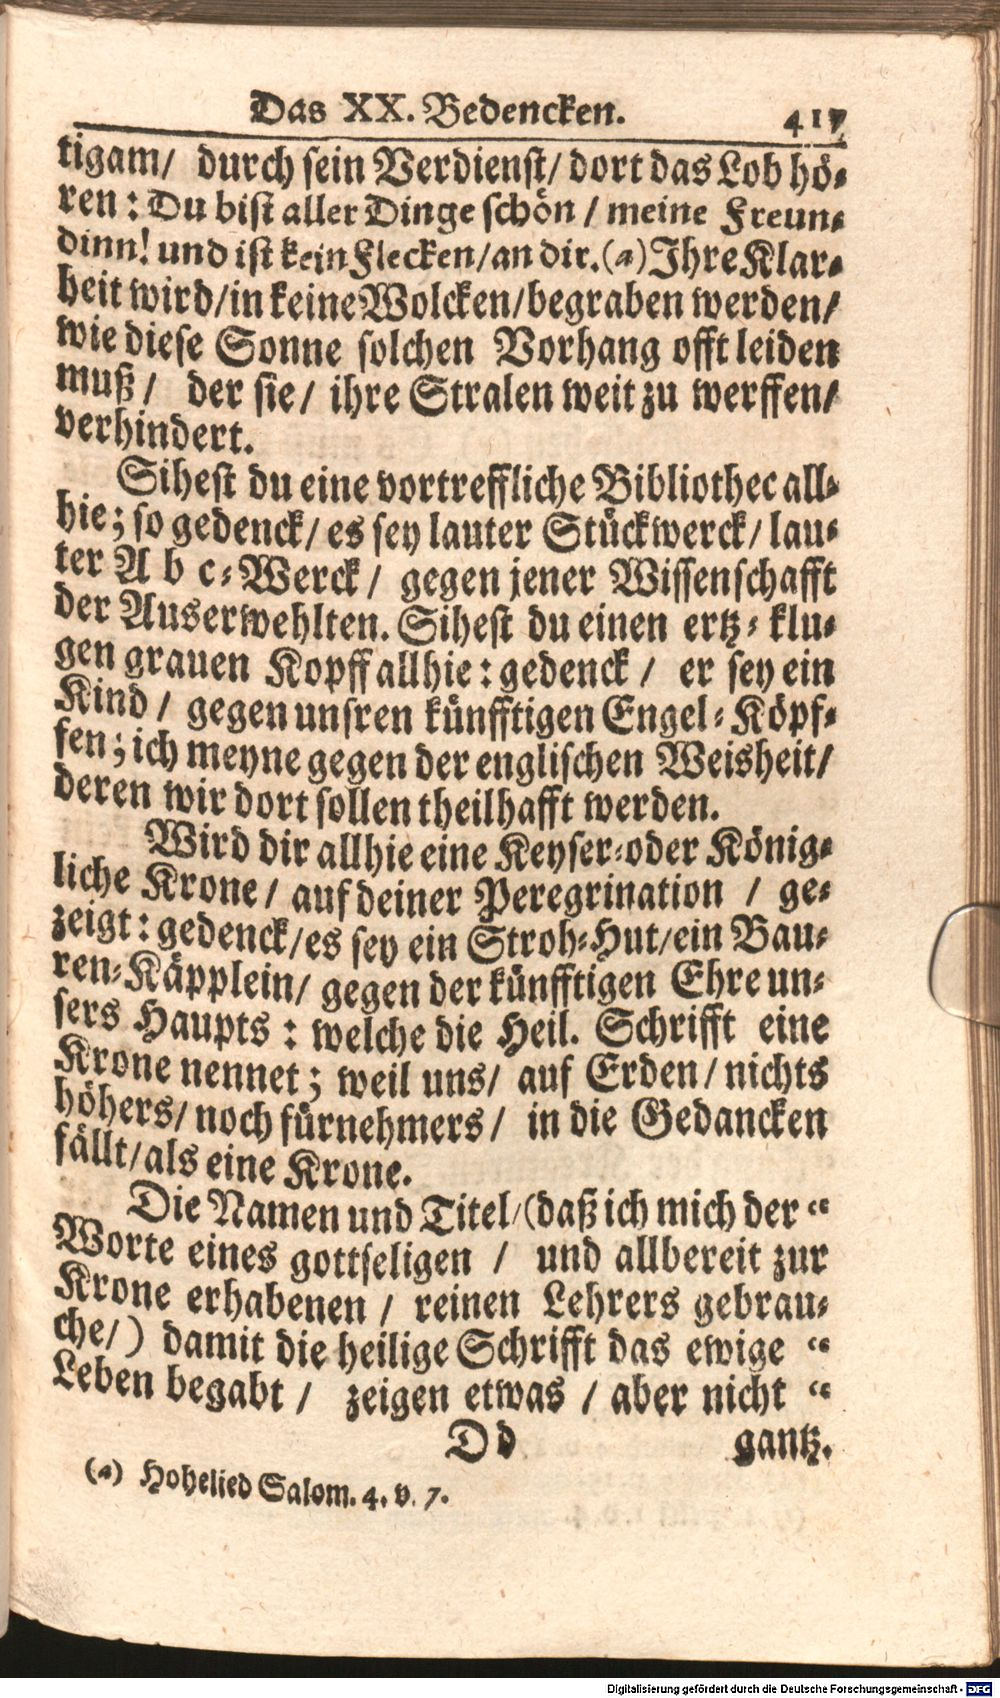 Das XX. Bedencken. 417
tigam/ durch sein Verdienst/ dort das Lob hö-
ren: Du bist aller Dinge schön / meine Freun-
dinn! und ist kein Flecken/an dir.(a) Ihre Klar-
heit wird/in keine Wolcken/begraben werden/
wie diese Sonne solchen Vorhang offt leiden
muß/ der sie/ ihre Stralen weit zu werffen/
verhindert.
Sihest du eine vortreffliche Bibliothec all-
hie; so gedenck/ es sey lauter Stückwerck/ lau-
ter A b c-Werck/ gegen jener Wissenschafft
der Auserwehlten. Sihest du einen ertz-klu-
gen grauen Kopff allhie: gedenck/ er sey ein
Kind/ gegen unsren künfftigen Engel-Köpf-
fen; ich meyne gegen der englischen Weisheit/
deren wir dort sollen theilhafft werden.
Wird dir allhie eine Keyser-oder König-
liche Krone/ auf deiner Peregrination / ge-
zeigt: gedenck/es sey ein Stroh-Hut/ein Bau-
ren-Käpplein/ gegen der künfftigen Ehre un-
sers Haupts: welche die Heil. Schrifft eine
Krone nennet; weil uns/ auf Erden/ nichts
höhers/ noch fürnehmers/ in die Gedancken
fällt/als eine Krone.
Die Namen und Titel/(daß ich mich der “
Worte eines gottseligen / und allbereit zur
Krone erhabenen/ reinen Lehrers gebrau-
che/) damit die heilige Schrifft das ewige “
Leben begabt/ zeigen etwas / aber nicht “
Dd gantz.
(a) Hohelied Salom. 4. v. 7.
Digitalisierung gefördert durch die Deutsche Forschungsgemeinschaft - DFG